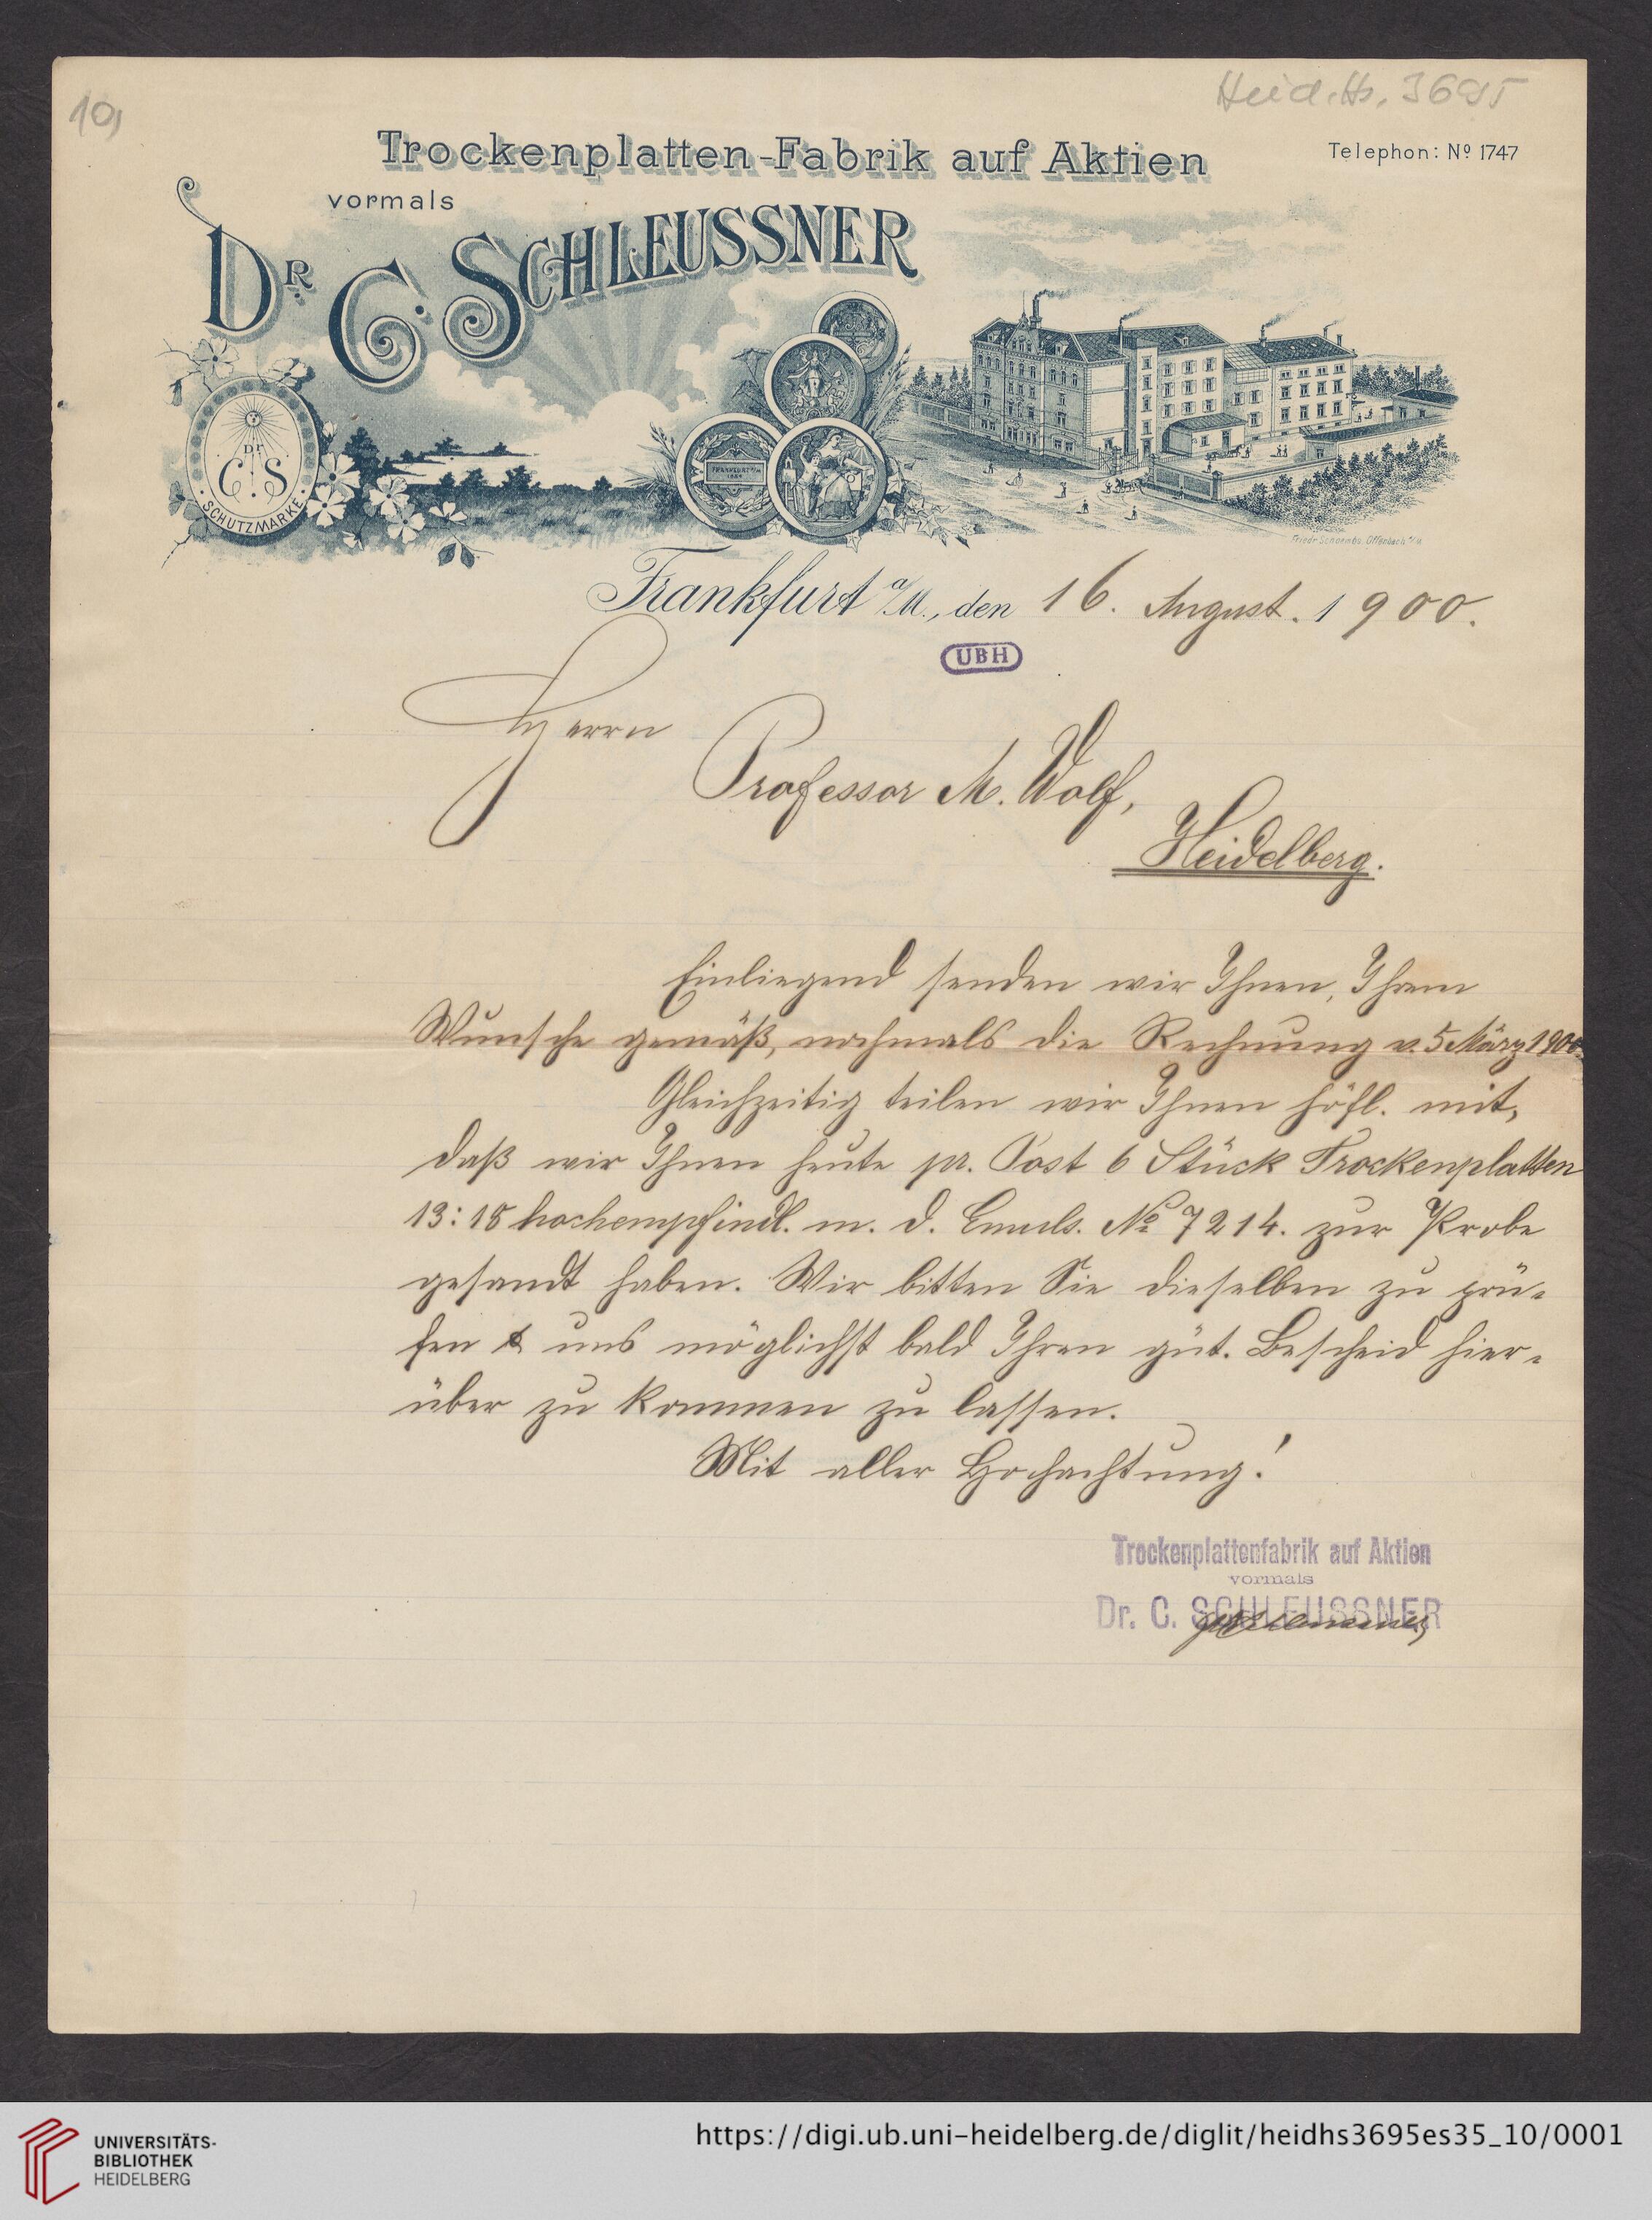 10,
Heid. Hs. 3695
Trockenplatten-Fabrik auf Aktien
Telephon: Nº 1747
vormals
DR. C. SCHLEUSSNER
DR
C. S
SCHUTZMARKE
FRANKFURT a/M
Friedr. Schoembs. Offenbach a/M.
Frankfurt a/M., den 16. August. 1900.
UBH
Herrn
Professor M. Wolf,
Heidelberg.
Einliegend senden wir Ihnen, Ihrem
Wunsche gemäß, nochmals die Rechnung v. 5 März 1900.
Gleichzeitig teilen wir Ihnen höfl. mit,
daß wir Ihnen heute pr. Post 6 Stück Trockenplatten
13:18 hochempfindl. m. d. Emuls. Nº 7214. zur Probe
gesandt haben. Wir bitten Sie dieselben zu prü-
fen & uns möglichst bald Ihren güt. Bescheid hier-
über zu kommen zu lassen.
Mit aller Hochachtung!
Trockenplattenfabrik auf Aktien
vormals
Dr. C. SCHLEUSSNER
UNIVERSITÄTS-
BIBLIOTHEK
HEIDELBERG
https://digi.ub.uni-heidelberg.de/diglit/heidhs3695es35_10/0001